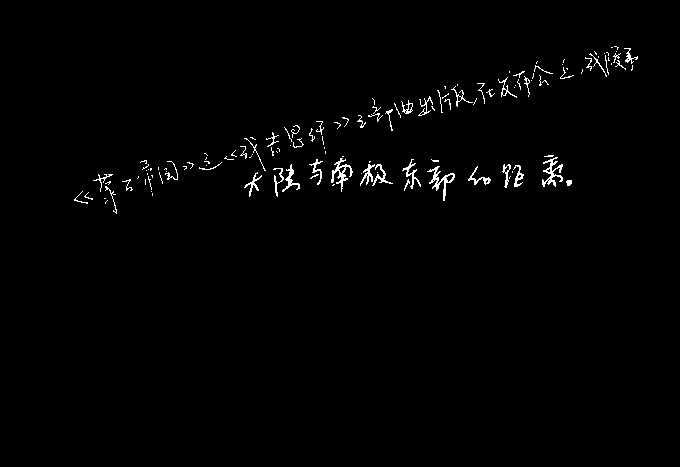 《蒙古帝国》之《成吉思汗》三部曲出版社发布会上,我股东
大陆与南极东部的距离。